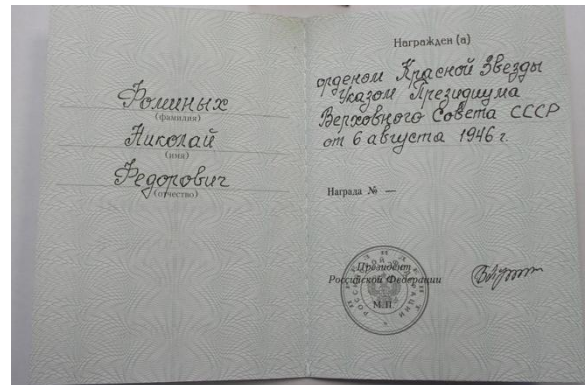 Фоминых
(фамилия)
Николай
(имя)
Федорович
(отчество)
Награжден (а)
орденом Красной Звезды
Указом Президиума
Верховного Совета СССР
от 6 августа 1946 г.
Награда № —
Президент
Российской Федерации
М.П.